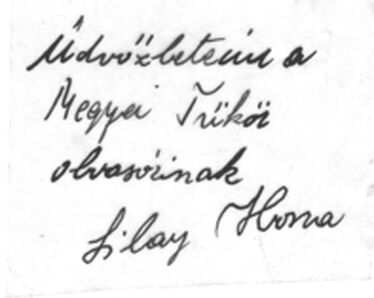 Üdvözletem a
Megyei Tükör
olvasóinak
Lilay Ilona